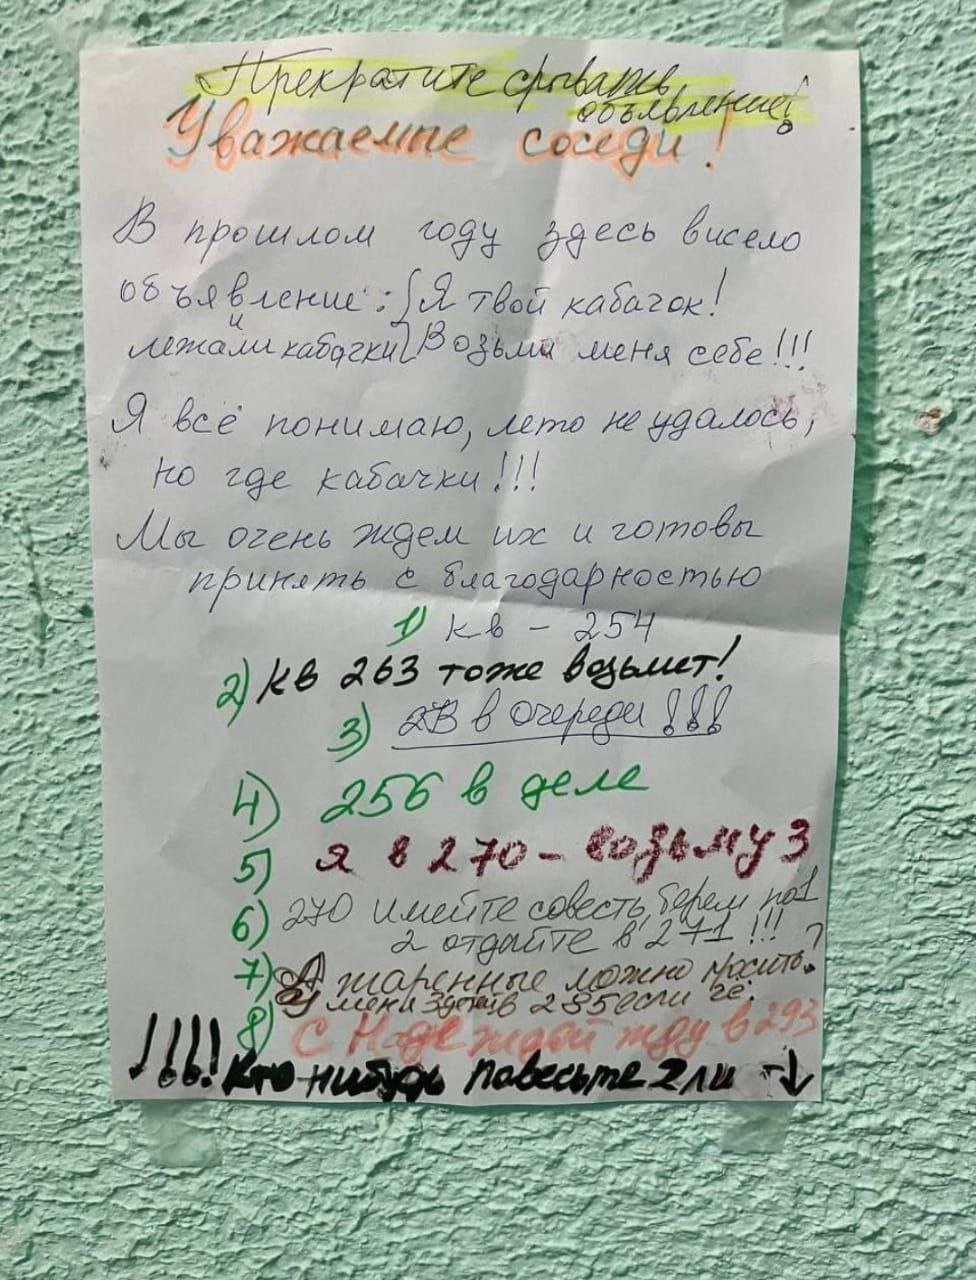 Прекратите срывать
объявление!
Уважаемые соседи!
В прошлом году здесь висело
объявление: Я твой кабачок!
и
лежали кабачки Возьми меня себе!!!
Я всё понимаю, лето не удалось,
но где кабачки!!!
Мы очень ждем их и готовы
принять с благодарностью
1) кв - 254
2) кв 263 тоже возьмет!
3) в очереди!!!
4) 256 в деле
5) я в 270 - возьму 3
6) 270 имейте совесть, берем по 1
2 отдайте в 271!!!
7) А жареные можно носить?
У меня в 285 если че.
8) С Надеждой жду в 293
!!!! Кто нибудь повесьте 2 ли ↓